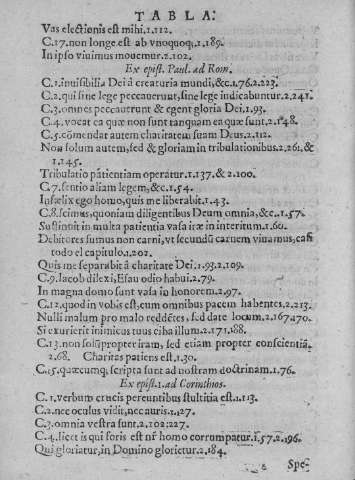 TABLA.
Vas electionis est mihi. 1.112.
C.17. non longe est ab vnoquoq;. 1.189.
In ipso viuimus mouemur. 2.102.
Ex epist. Paul. ad Rom.
C.1. inuisibilia Dei à creaturia mundi, &c. 1.76. 2.223.
C.2. qui sine lege peccauerunt, sine lege indicabuntur. 2.241.
C.3. omnes peccauerunt & egent gloria Dei. 1.93.
C.4. vocat ea quæ non sunt tanquam ea quæ sunt. 2.148.
C.5. cõmendat autem charitatem suam Deus. 2.112.
Non solum autem, sed & gloriam in tribulationibus. 2.261. &
1.145.
Tribulatio patientiam operatur. 1.137. & 2.100.
C.7. sentio aliam legem, &c. 1.54.
Infœlix ego homo, quis me liberabit. 1.43.
C.8. scimus, quoniam diligentibus Deum omnia, &c. 1.57.
Sustinuit in multa patientia vasa iræ in interitum. 1.60.
Debitores sumus non carni, vt secundũ carnem viuamus, casi
todo el capitulo. 1.202.
Quis me separabit à charitate Dei. 1.93. 2.109.
C.9. Iacob dilexi, Esau odio habui. 2.79.
In magna domo sunt vasa in honorem. 2.97.
C.12. quod in vobis est, cum omnibus pacem habentes. 2.213.
Nulli malum pro malo reddẽtes, sed date locum. 2.167. 170.
Si exurierit inimicus tuus ciba illum. 2.171. 188.
C.13. non solũ propter iram, sed etiam propter conscientiã
2.68. Charitas patiens est. 1.30.
C.15. quæcumq; scripta sunt ad nostram doctrinam. 1.76.
Ex epist. 1. ad Corinthios.
C.1. verbum crucis pereuntibus stultitia est. 1.113.
C.2. nec oculus vidit, nec auris. 1.127.
C.3. omnia vestra sunt. 2.102. 227.
C.4. licet is qui foris est nr̃ homo corrumpatur. 1.57. 2.196.
Qui gloriatur, in Domino glorietur. 2.184.
Spe-